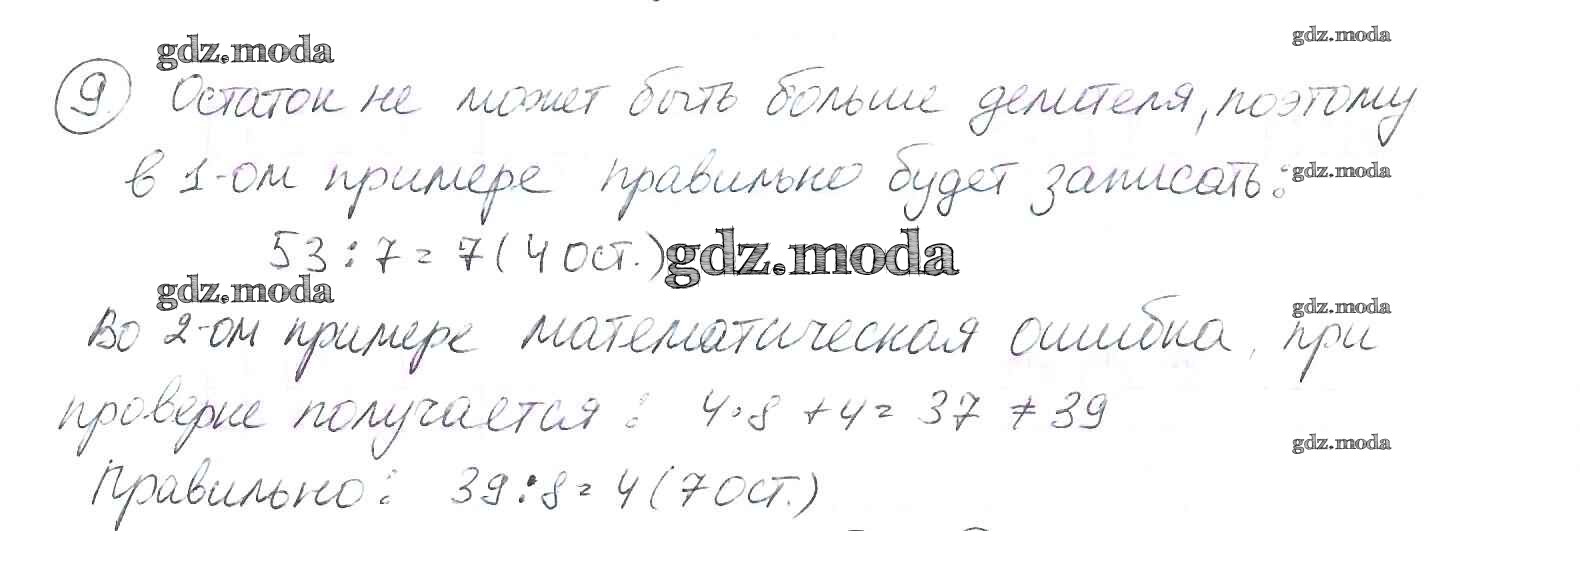 gdz.moda
gdz.moda
9. Остаток не может быть больше делителя, поэтому
в 1-ом примере правильно будет записать:
gdz.moda
53 : 7 = 7 (4 ост.)
gdz.moda
gdz.moda
gdz.moda
Во 2-ом примере математическая ошибка, при
проверке получается : 4·8 + 4 = 37 ≠ 39
gdz.moda
Правильно : 39 : 8 = 4 (7 ост.)